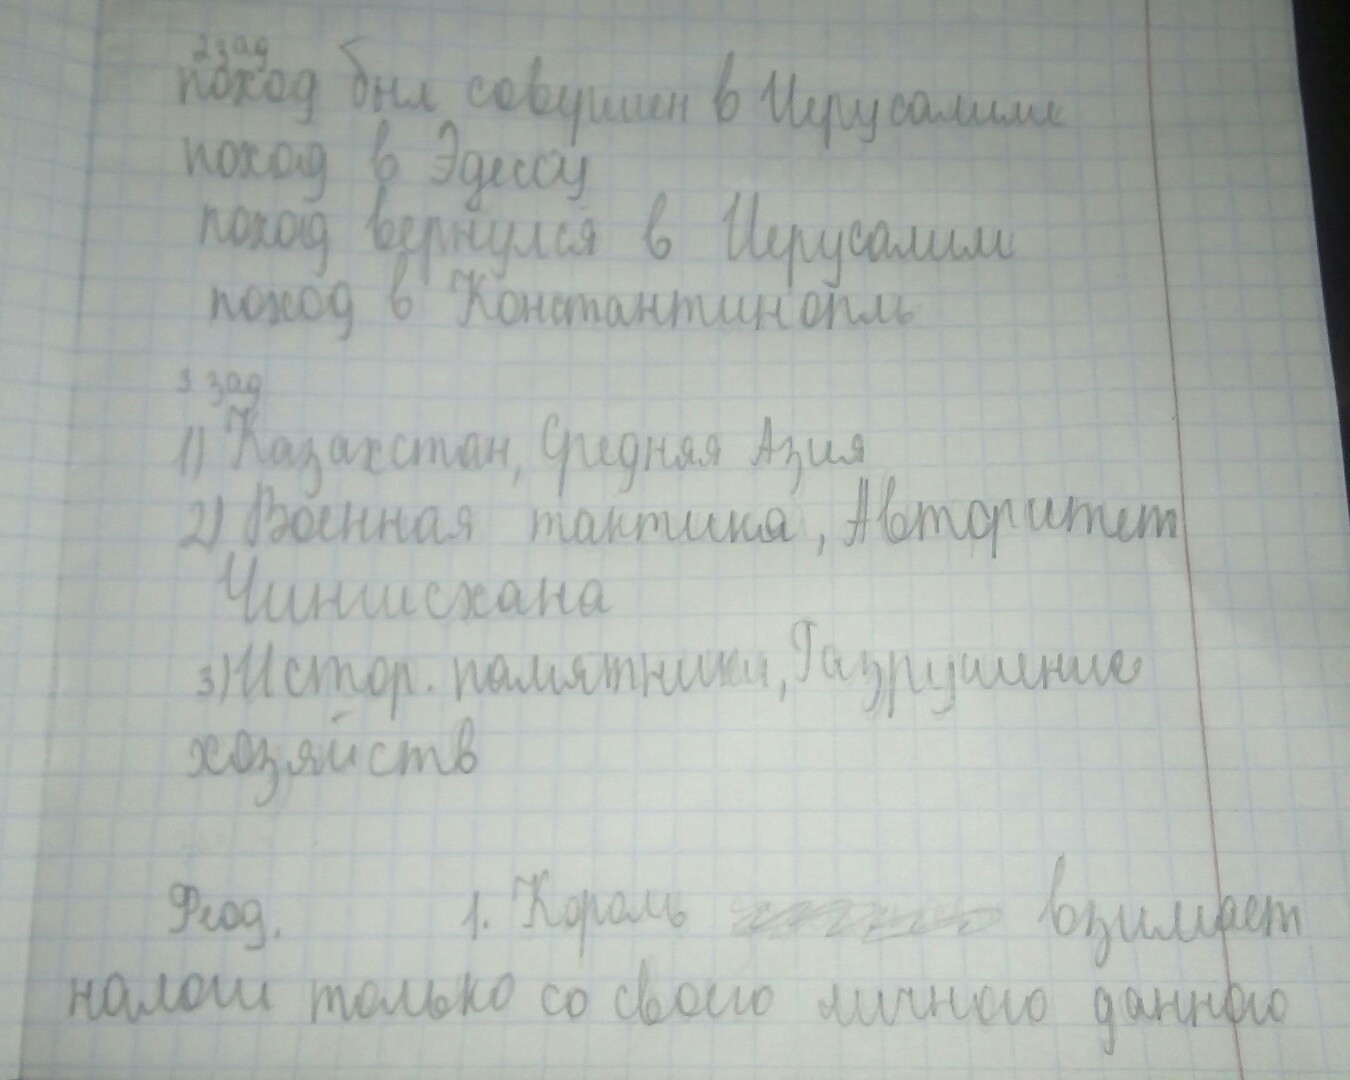 2 зад
поход был совершен в Иерусалиме
поход в Эдессу
поход вернулся в Иерусалим
поход в Константинопль
3 зад
1) Казахстан, Средняя Азия
2) Военная тактика, Авторитет
Чингисхана
3) Истор. памятники, Разрушение
хозяйств
Феод. 1. Король взимает
налоги только со своего личного данного